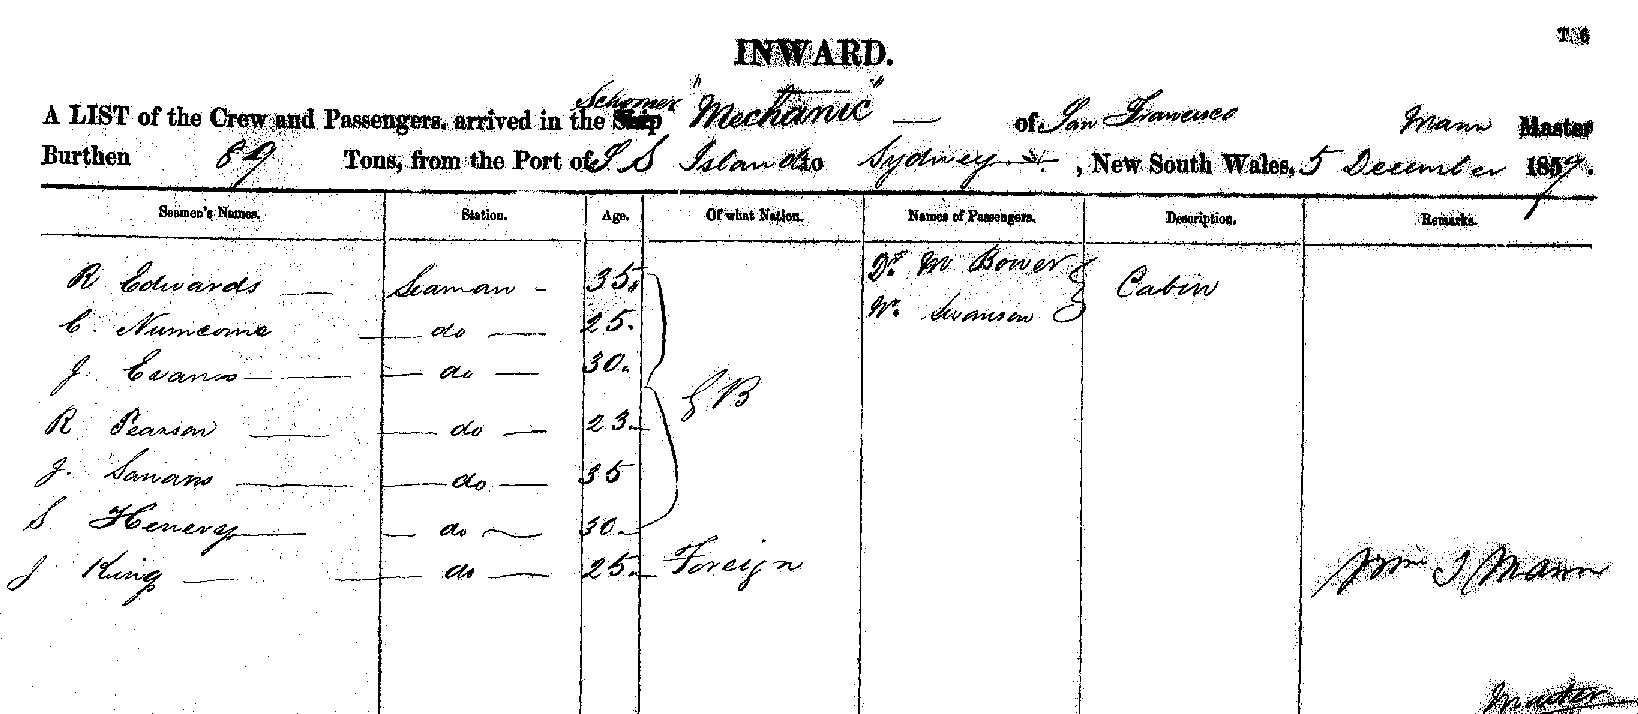 T. 6
INWARD.
A LIST of the Crew and Passengers, arrived in the Schooner "Mechanic" — of San Francisco Mann Master
Burthen 89 Tons, from the Port of S. S Island to Sydney, New South Wales, 5 December 1857.
Seamen's Names. Station. Age. Of what Nation. Names of Passengers. Description. Remarks.
R Edwards — Seaman - 35. Dr. M Bower
C. Numcome — do — 25. Wm. Swanson Cabin
J. Evans — do — 30.
R Pearson — do — 23. G B
J. — do — 35
S Henery — do — 30.
J King — do — 25. Foreign
Wm J Mann
Master